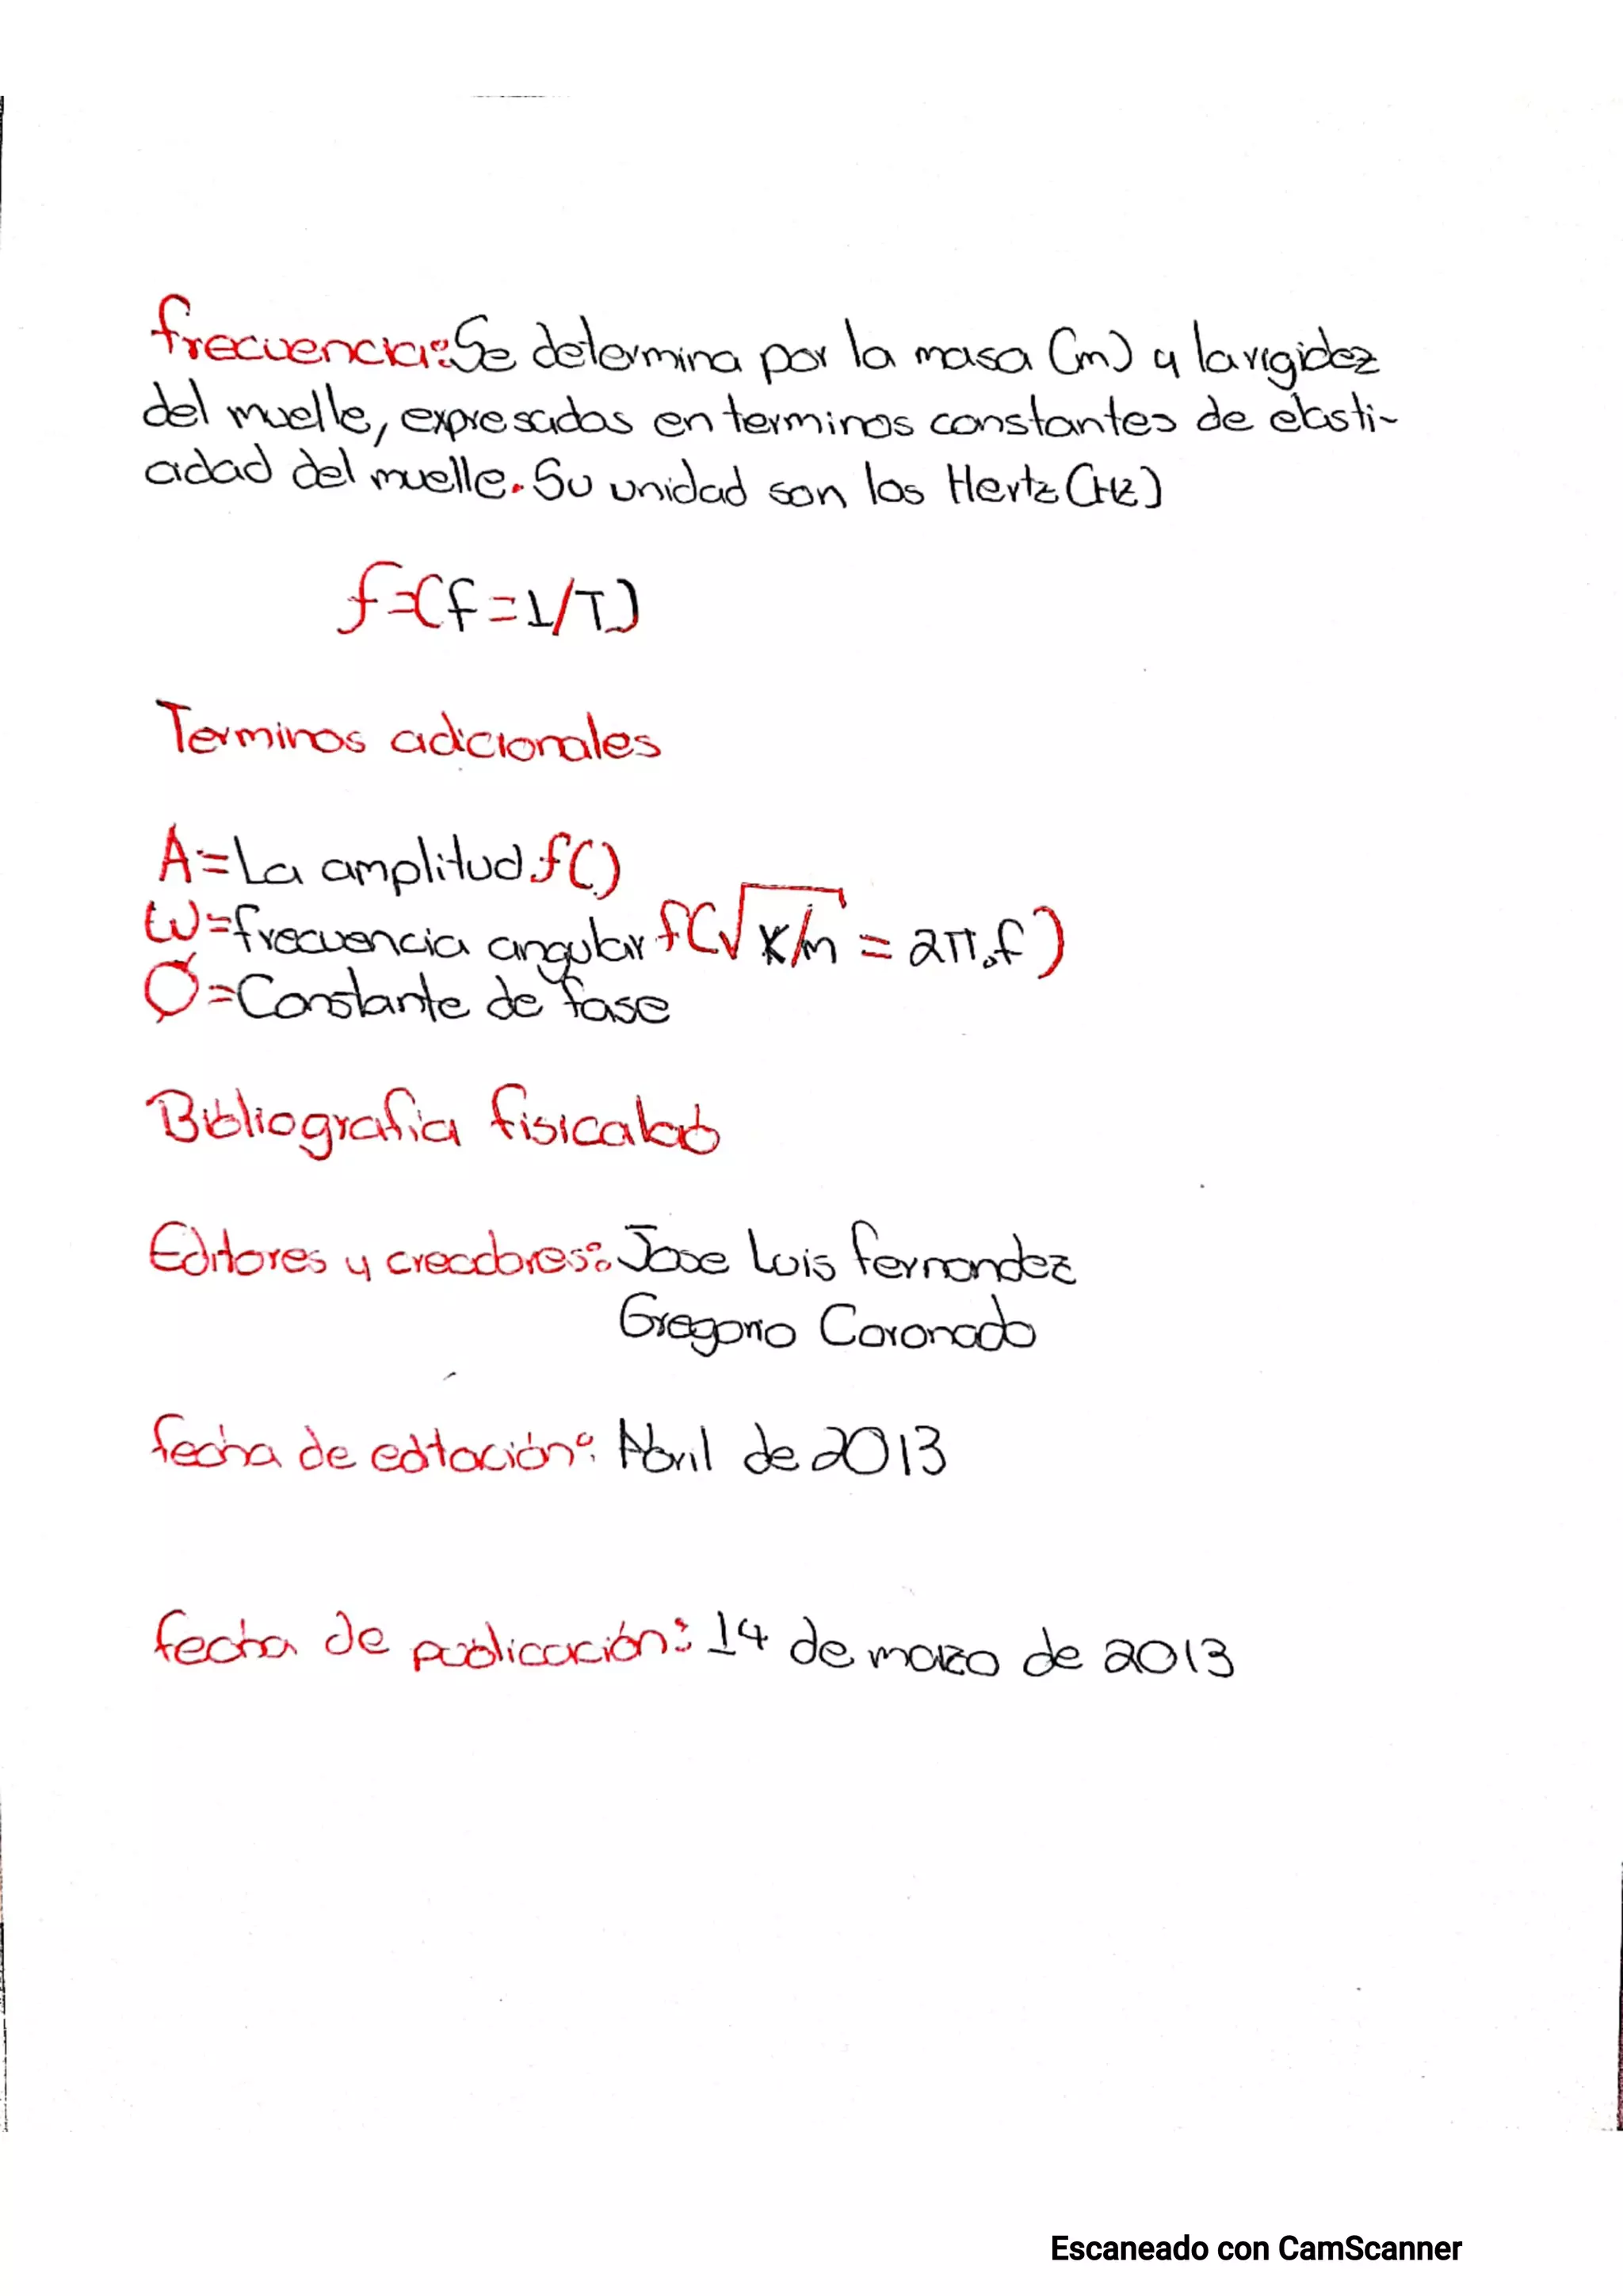 frecuencia: Se determina por la masa (m) y la rigidez
del muelle, expresados en terminos constantes de elasti-
cidad del muelle. Su unidad son los Hertz (Hz)
f=(f=1/T)
Terminos adicionales
A=La amplitud f()
ω=frecuencia angular f(√k/m = 2π.f)
Ø=Constante de fase
Bibliografia fisicalab
Editores y creadores: Jose Luis fernandez
Gregorio Coronado
fecha de editación: Abril de 2013
fecha de publicación: 14 de marzo de 2013
Escaneado con CamScanner